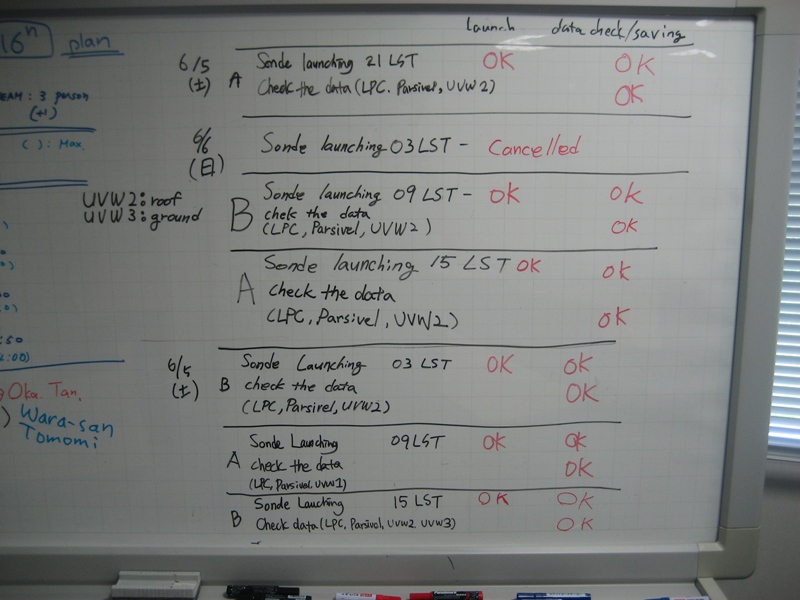 16th plan
EAM : 3 person
(+1)
( ) : Max.
UVW2 : roof
UVW3 : ground
Oka. Tan.
Wara-san
Tomomi
Launch data check/saving
6/5 (土) A Sonde launching 21 LST OK OK
Check the data (LPC. Parsivel, UVW2) OK
6/6 (日) Sonde launching 03 LST - Cancelled
B Sonde launching 09 LST - OK OK
chek the data OK
(LPC, Parsivel, UVW2)
A Sonde launching 15 LST OK OK
check the data
(LPC, Parsivel, UVW2) OK
6/5 (土) B Sonde Launching 03 LST OK OK
check the data OK
(LPC, Parsivel, UVW2)
A Sonde Launching 09LST OK OK
check the data OK
(LPC, Parsivel, UVW1)
B Sonde Lauching 15 LST OK OK
Check data (LPC, Parsivel, UVW2 UVW3) OK